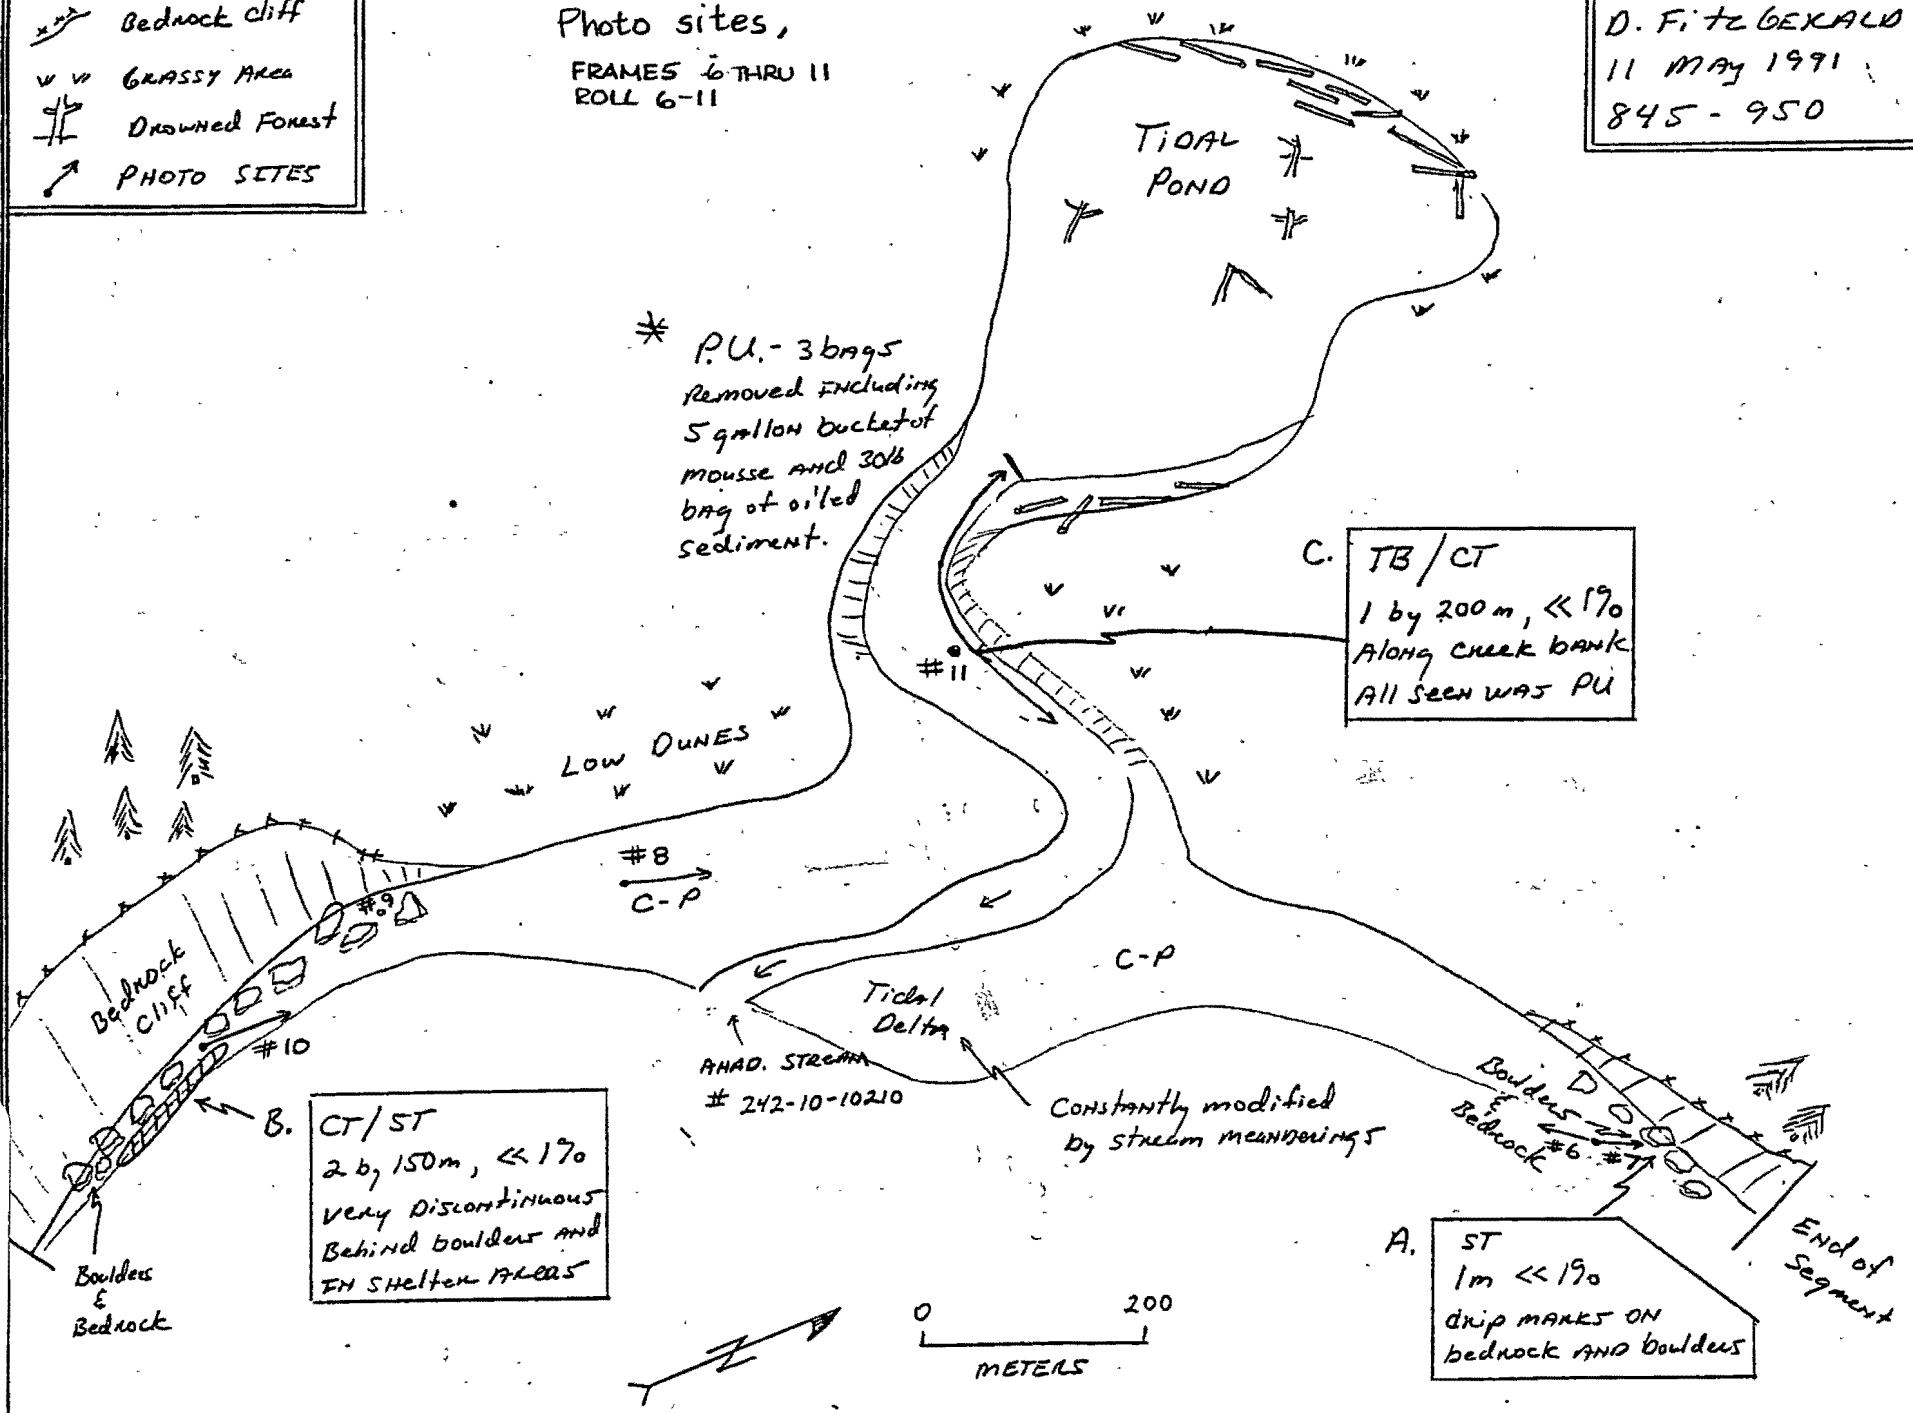 Bedrock cliff
GRASSY Area
Drowned Forest
PHOTO SITES
Photo sites,
FRAMES 6 THRU 11
ROLL 6-11
D. FitzGERALD
11 MAY 1991
845 - 950
TIDAL
POND
* P.U. - 3 bags
Removed Including
5 gallon bucket of
mousse and 30lb
bag of oiled
sediment.
C.
TB / CT
1 by 200 m, << 1%
Along creek bank
All seen was PU
#11
LOW DUNES
#8
C-P
#9
Bedrock
Cliff
#10
C-P
Tidal
Delta
AHAD. STREAM
# 242-10-10210
Constantly modified
by stream meanderings
Boulders
&
Bedrock
#6
#7
B.
CT / ST
2 by 150m, << 1%
very Discontinuous
Behind boulders and
IN Shelter Areas
Boulders
&
Bedrock
A.
ST
1m << 1%
drip marks on
bedrock and boulders
End of
Segment
N
0 200
METERS